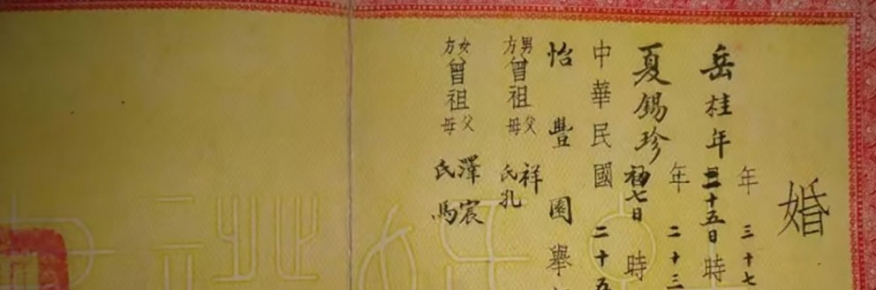 婚
年 三十七
岳桂年 十五日時
年 二十三
夏錫珍 初七日 時
中華民國 二十五
怡豐園舉
男方曾祖父母 祥 氏孔
女方曾祖父母 澤宸 氏馬